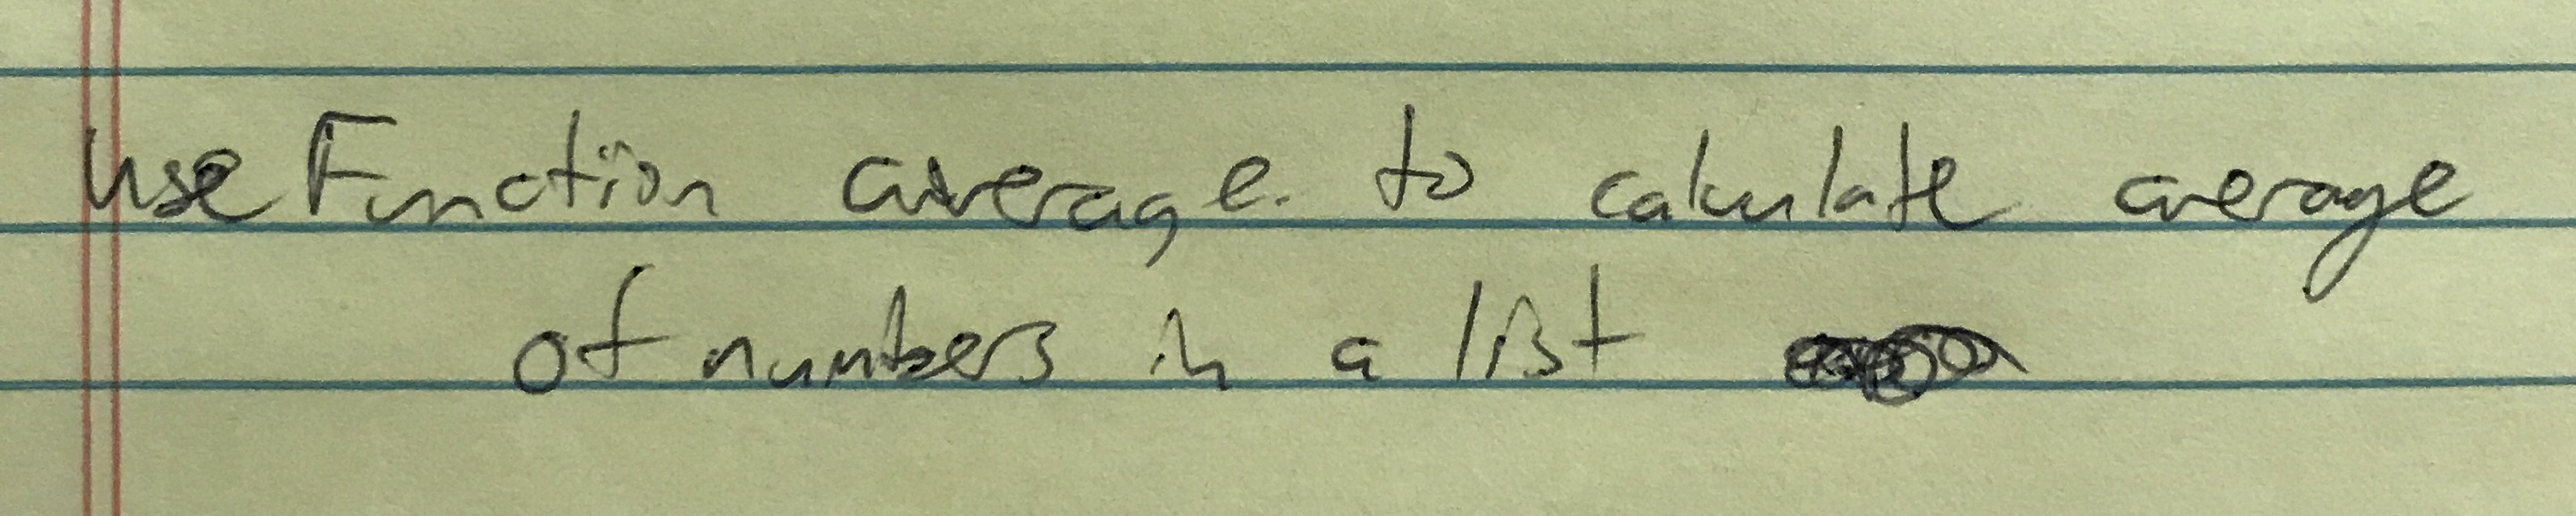 use Function average. to calculate average
of numbers in a list